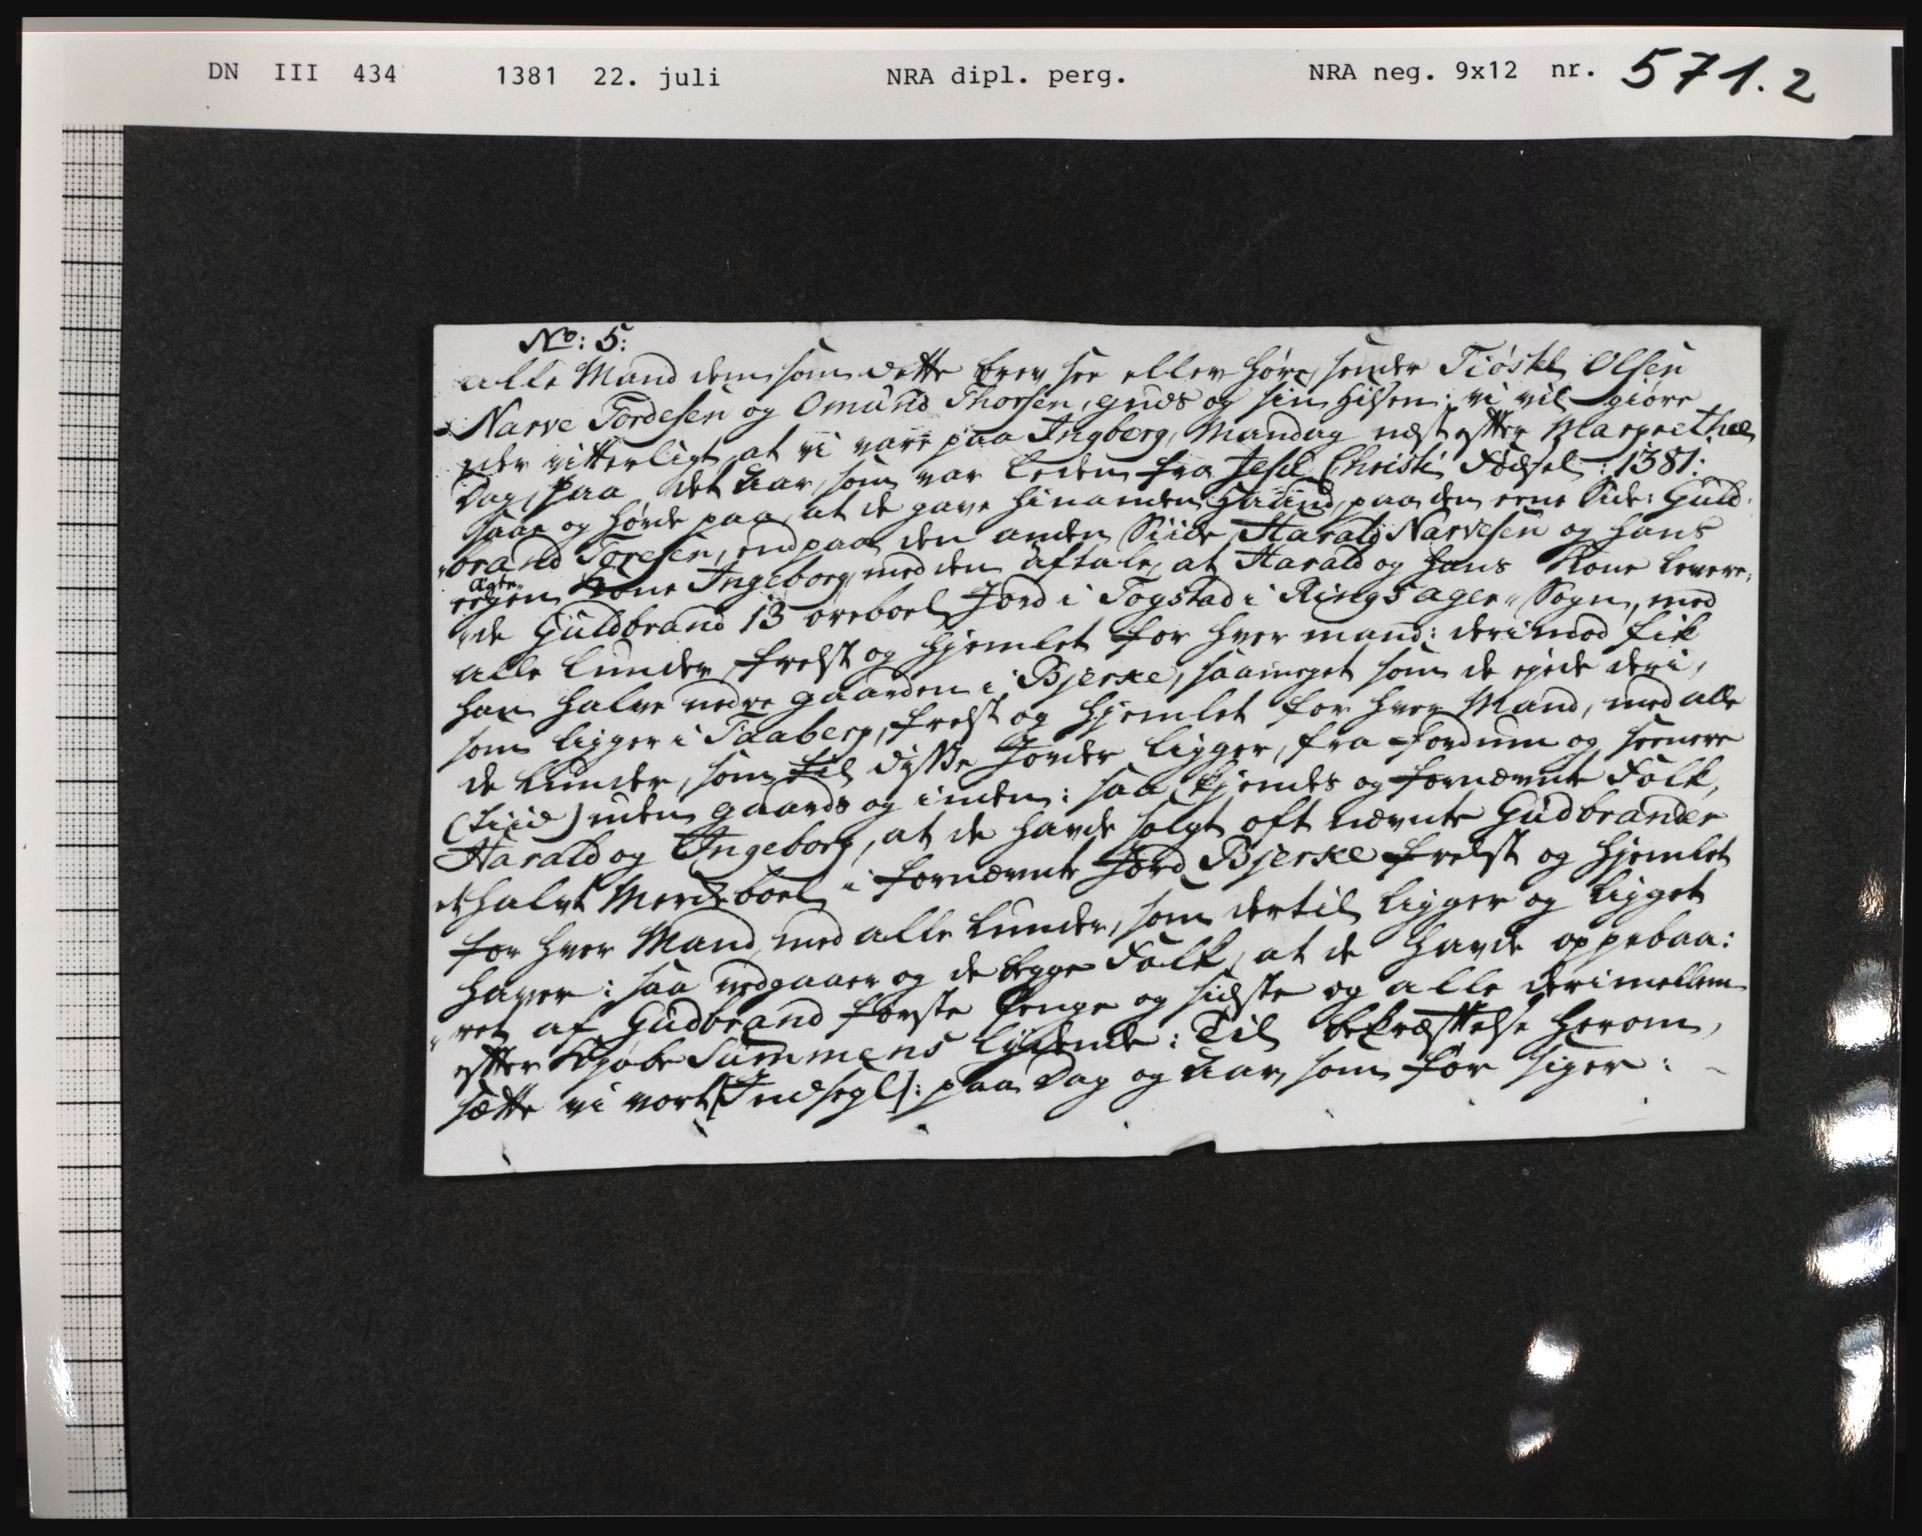 DN III 434 1381 22. juli NRA dipl. perg. NRA neg. 9x12 nr. 571.2
No: 5:
Alle Mand dem som dette brev see eller høre, sender Tiøstel Olsen
Narve Tordesen og Omund Thorsen, guds og sin Hilsen: vi vil giøre
eder vitterligt, at vi vare paa Ingberg, Mandag næst efter Margrethæ
Dag, paa det Aar, som var leden fra Jesu Christi Fødsel: 1381:
saae og hørde paa, at de gave hinanden Haand, paa den eene Side: Guld-
brand Toresen, end paa den anden Siide, Harald Narvesen og hans
Ægte
eegen Kone Ingeborg, med den Aftale, at Harald og hans Kone levere,
de Guldbrand 13 øreboel Jord i Togstad i Ringsager Sogn, med
alle Lunder, frelst og hjemlet for hver mand: derimod fik
han halve nedre gaarden i Bjerke, saameget som de ejede deri,
som ligger i Faaberg, frelst og hjemlet for hver Mand, med alle
de Lunder, som til disse Jorder ligger, fra fordum og seenere
(Tiid) uden gaards og inden: saa kjendes og fornævnte Folk,
Harald og Ingeborg, at de havde solgt oft nævnte Gudbrander
et halvt Merkeboel i fornævnte Jord Bjerke frelst og hjemlet
for hver Mand, med alle Lunder, som dertil ligger og ligget
haver: saa vedgaaer og de begge Folk, at de havde oppebaa:
ret af Gudbrand første Penge og sidste og alle derimellem
efter Kjøbe Summens lydende: Til bekræftelse herom,
sætte vi vort [Indsegl]: paa Dag og Aar, som før siger: